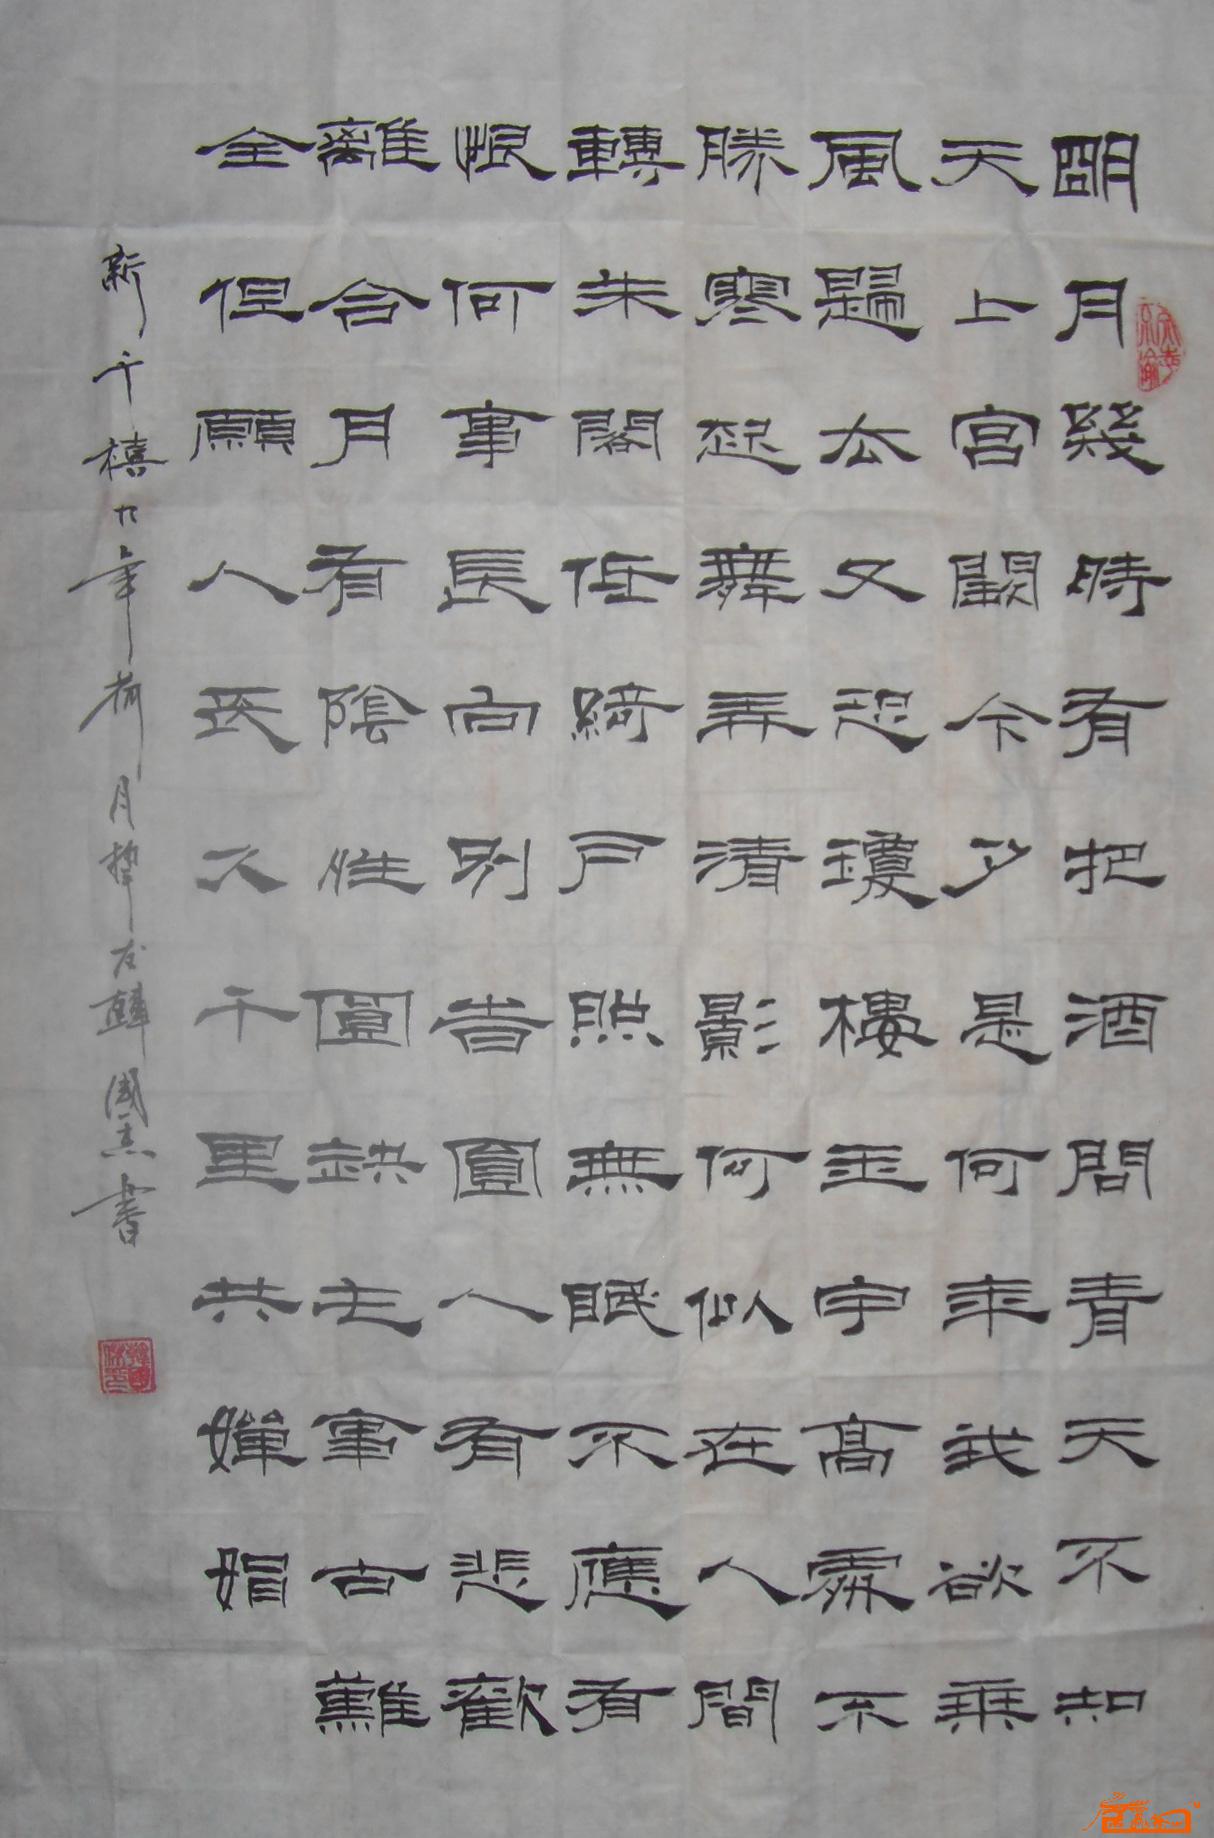 明月幾時有把酒問青天不知
天上宮闕今夕是何年我欲乘
風歸去又恐瓊樓玉宇高處不
勝寒起舞弄清影何似在人間
轉朱閣低綺戶照無眠不應有
恨何事長向別旹圓人有悲歡
離合月有陰晴圓缺此事古難
全但願人長久千里共嬋娟
新千禧九年荷月韓國杰書